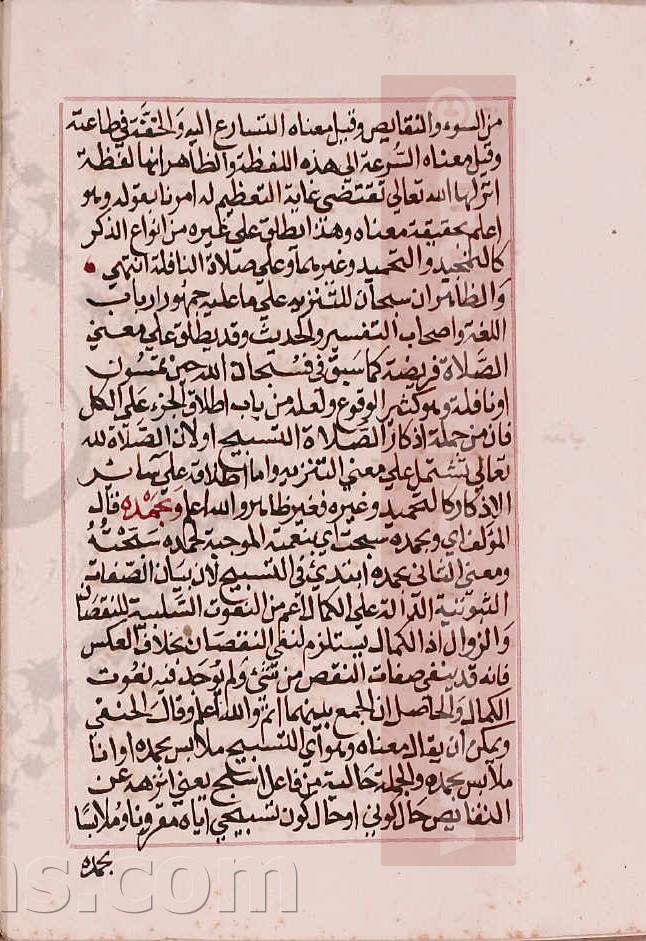 من السوء والنقايص وقيل معناه التسارع اليه والخفة في طاعته
وقيل معناه السرعة الي هذه اللفظة والظاهر انها لفظة
انزلها الله تعالي تقتضي غاية التعظيم له امرنا بقوله وهو
اعلم بحقيقة معناه وهذا يطلق علي غيره من انواع الذكر
كالتمجيد والتحميد وغيرهما وعلي صلاة النافلة انتهي
والظاهر ان سبحان للتنزيه علي ما عليه جمهور ارباب
اللغة واصحاب التفسير والحديث وقد يطلق علي معني
الصلاة فريضة كما سبق في فسبحان الله حين تمسون
او نافلة وهو كثير الوقوع ولعله من باب اطلاق الجزء علي الكل
فان من جملة اذكار الصلاة التسبيح او لان الصلاة لله
تعالي تشتمل علي معني التنزيه واما اطلاقه علي سائر
الاذكار كالتحميد وغيره فغير ظاهر والله اعلم وبحمده قال
المؤلف اي وبحمده سبحت اي بنعمته الموجبة لحمده سبحته
ومعني الثاني بحمده ابتدئ في التسبيح لان بيان الصفات
الثبوتية الدالة علي الكمال اعم من النعوت السلبية للنقصان
والزوال اذ الكمال يستلزم لنفي النقصان بخلاف العكس
فانه قد ينفي صفات النقص من شئ ولم يوجد فيه نعوت
الكمال والحاصل ان الجمع بينهما اتم والله اعلم وقال الحنفي
ويمكن ان يقال معناه وهو اي التسبيح ملابس بحمده او انا
ملابس بحمده والجملة حالية من فاعل اسبح يعني انزهه عن
النقايص حال كوني او حال كون تسبيحي اياه مقرونا وملابسا
بحمده
ns.com